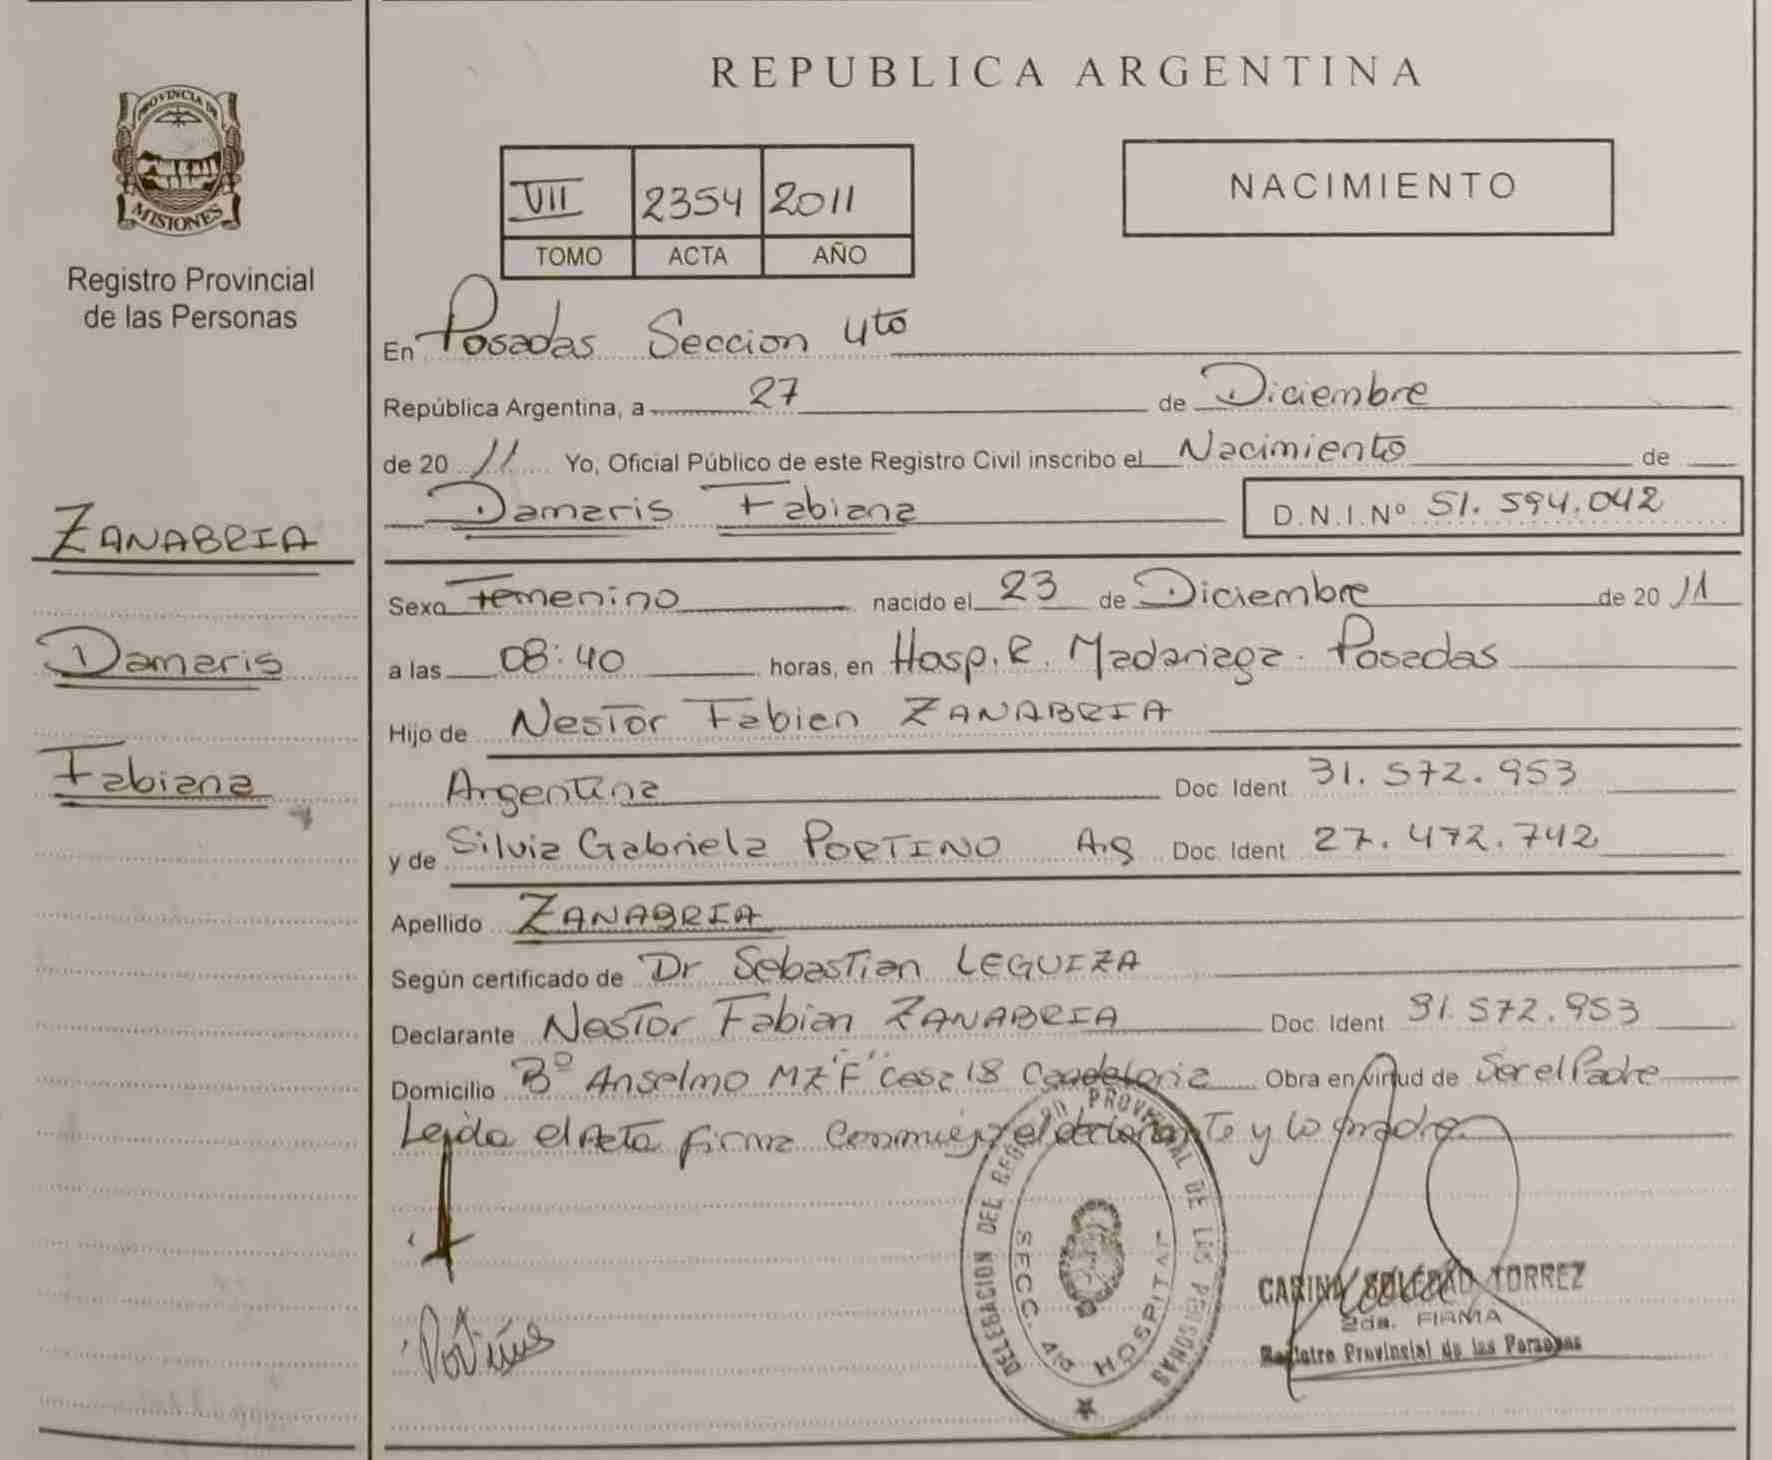 REPUBLICA ARGENTINA
PROVINCIA DE
MISIONES
Registro Provincial
de las Personas
VII 2354 2011
TOMO ACTA AÑO
NACIMIENTO
En Posadas Seccion 4to
República Argentina, a 27 de Diciembre
de 20 11 Yo, Oficial Público de este Registro Civil inscribo el Nacimiento de
Damaris Fabiana D.N.I.Nº 51.594.042
ZANABRIA
Damaris
Fabiana
Sexo Femenino nacido el 23 de Diciembre de 20 11
a las 08:40 horas, en Hosp. R. Madariaga. Posadas
Hijo de Nestor Fabien ZANABRIA
Argentina Doc. Ident 31.572.953
y de Silvia Gabriela PORTINO Arg Doc. Ident 27.472.742
Apellido ZANABRIA
Según certificado de Dr Sebastian LEGUIZA
Declarante Nestor Fabian ZANABRIA Doc. Ident 31.572.953
Domicilio Bº Anselmo MZ "F" Casa 18 Candelaria Obra en virtud de Ser el Padre
Leida el Acta firma Conmigo el declarante y la madre
DELEGACION DEL REGISTRO PROVINCIAL DE LAS PERSONAS
SECC. 4ta HOSPITAL
CARINA SOLEDAD TORREZ
2da. FIRMA
Registro Provincial de las Personas